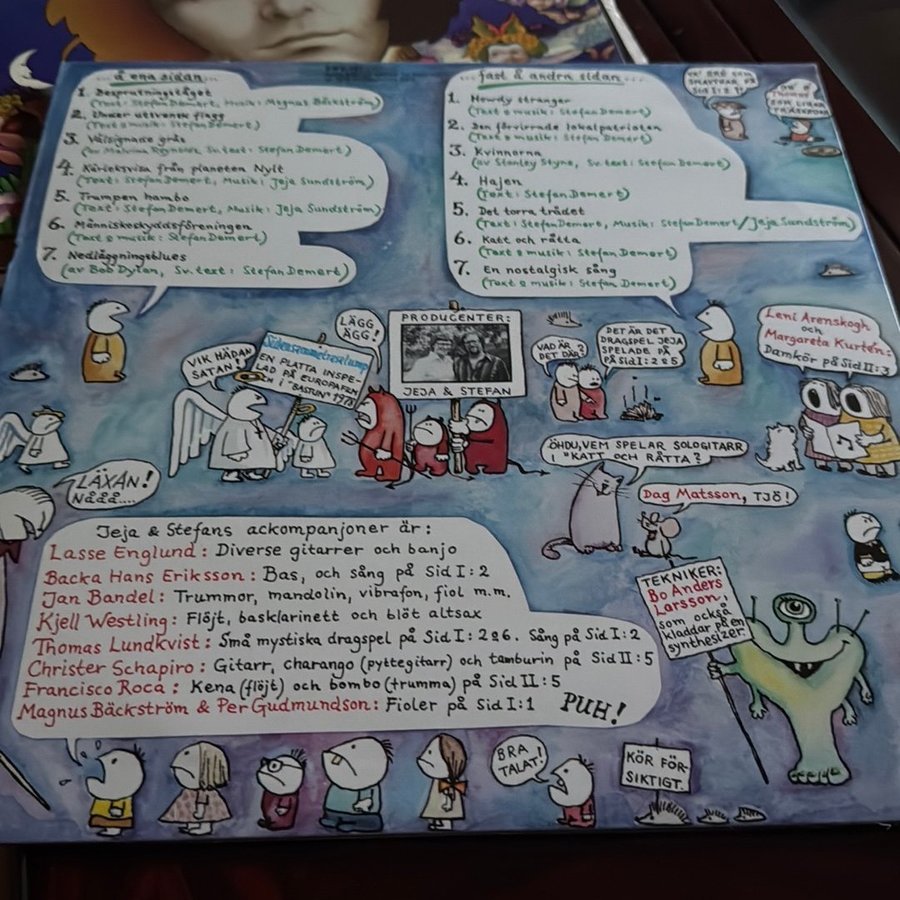 ...å ena sidan...
1. Besprutningståget
(Text: Stefan Demert, Musik: Magnus Bäckström)
2. Under utsvensk flagg
(Text & musik: Stefan Demert)
3. Välsignade gräs
(av Malvina Reynolds, Sv. text: Stefan Demert)
4. Kärleksvisa från planeten Nylt
(Text: Stefan Demert, Musik: Jeja Sundström)
5. Trampen hambo
(Text: Stefan Demert, Musik: Jeja Sundström)
6. Människoskyddsföreningen
(Text & musik: Stefan Demert)
7. Nedläggningsblues
(av Bob Dylan, Sv. text: Stefan Demert)
...fast å andra sidan...
1. Howdy stranger
(Text & musik: Stefan Demert)
2. Den förvirrade lokalpatrioten
(Text & musik: Stefan Demert)
3. Kvinnorna
(av Stanley Styne, Sv. text: Stefan Demert)
4. Hajen
(Text: Stefan Demert)
5. Det torra trädet
(Text: Stefan Demert, Musik: Stefan Demert/Jeja Sundström)
6. Katt och råtta
(Text & musik: Stefan Demert)
7. En nostalgisk sång
(Text & musik: Stefan Demert)
SID I: 2?
THOMAS
SOM LIRAR
VIK HÄDAN
SATAN!
EN PLATTA INSPE-
LAD PÅ EUROPAFILM
OCH I "BASTUN" 1978
LÄGG
ÄGG!
PRODUCENTER:
JEJA & STEFAN
VAD ÄR
DET DÄR?
DET ÄR DET
DRAGSPEL JEJA
SPELADE PÅ
PÅ SID I: 2 & 5
Leni Arenskogh
och
Margareta Kurtén:
Damkör på Sid II: 3
ÖHDU, VEM SPELAR SOLOGITARR
I "KATT OCH RÅTTA?
Dag Matsson, TJÖ!
LÄXAN!
NÅÅÅ....
Jeja & Stefans ackompanjoner är:
Lasse Englund: Diverse gitarrer och banjo
Backa Hans Eriksson: Bas, och sång på Sid I: 2
Jan Bandel: Trummor, mandolin, vibrafon, fiol m.m.
Kjell Westling: Flöjt, basklarinett och blöt altsax
Thomas Lundkvist: Små mystiska dragspel på Sid I: 2&6. Sång på Sid I: 2
Christer Schapiro: Gitarr, charango (pyttegitarr) och tamburin på Sid II: 5
Francisco Roca: Kena (flöjt) och bombo (trumma) på Sid II: 5
Magnus Bäckström & Per Gudmundson: Fioler på Sid I: 1
PUH!
TEKNIKER:
Bo Anders
Larsson,
som också
kladdar på en
synthesizer.
BRA
TALAT!
KÖR FÖR-
SIKTIGT.